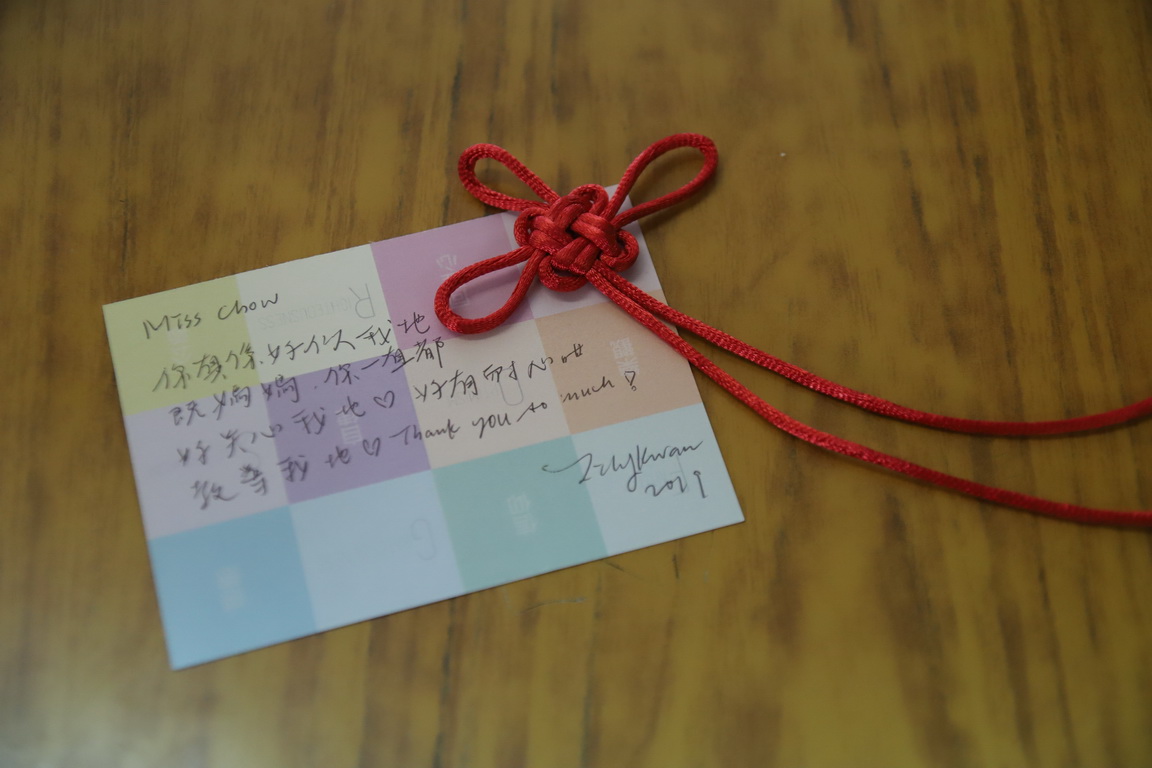 Miss Chow
你類似好似我地
既媽媽,你一直都
好關心我地♡好有耐心咁
教導我地♡ Thank you so much!
Kwan
2021